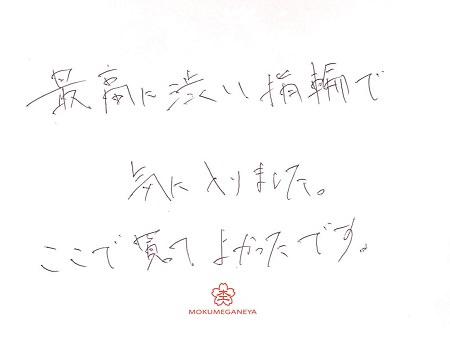 最高に渋い指輪で
気に入りました。
ここで買ってよかったです。
MOKUMEGANEYA